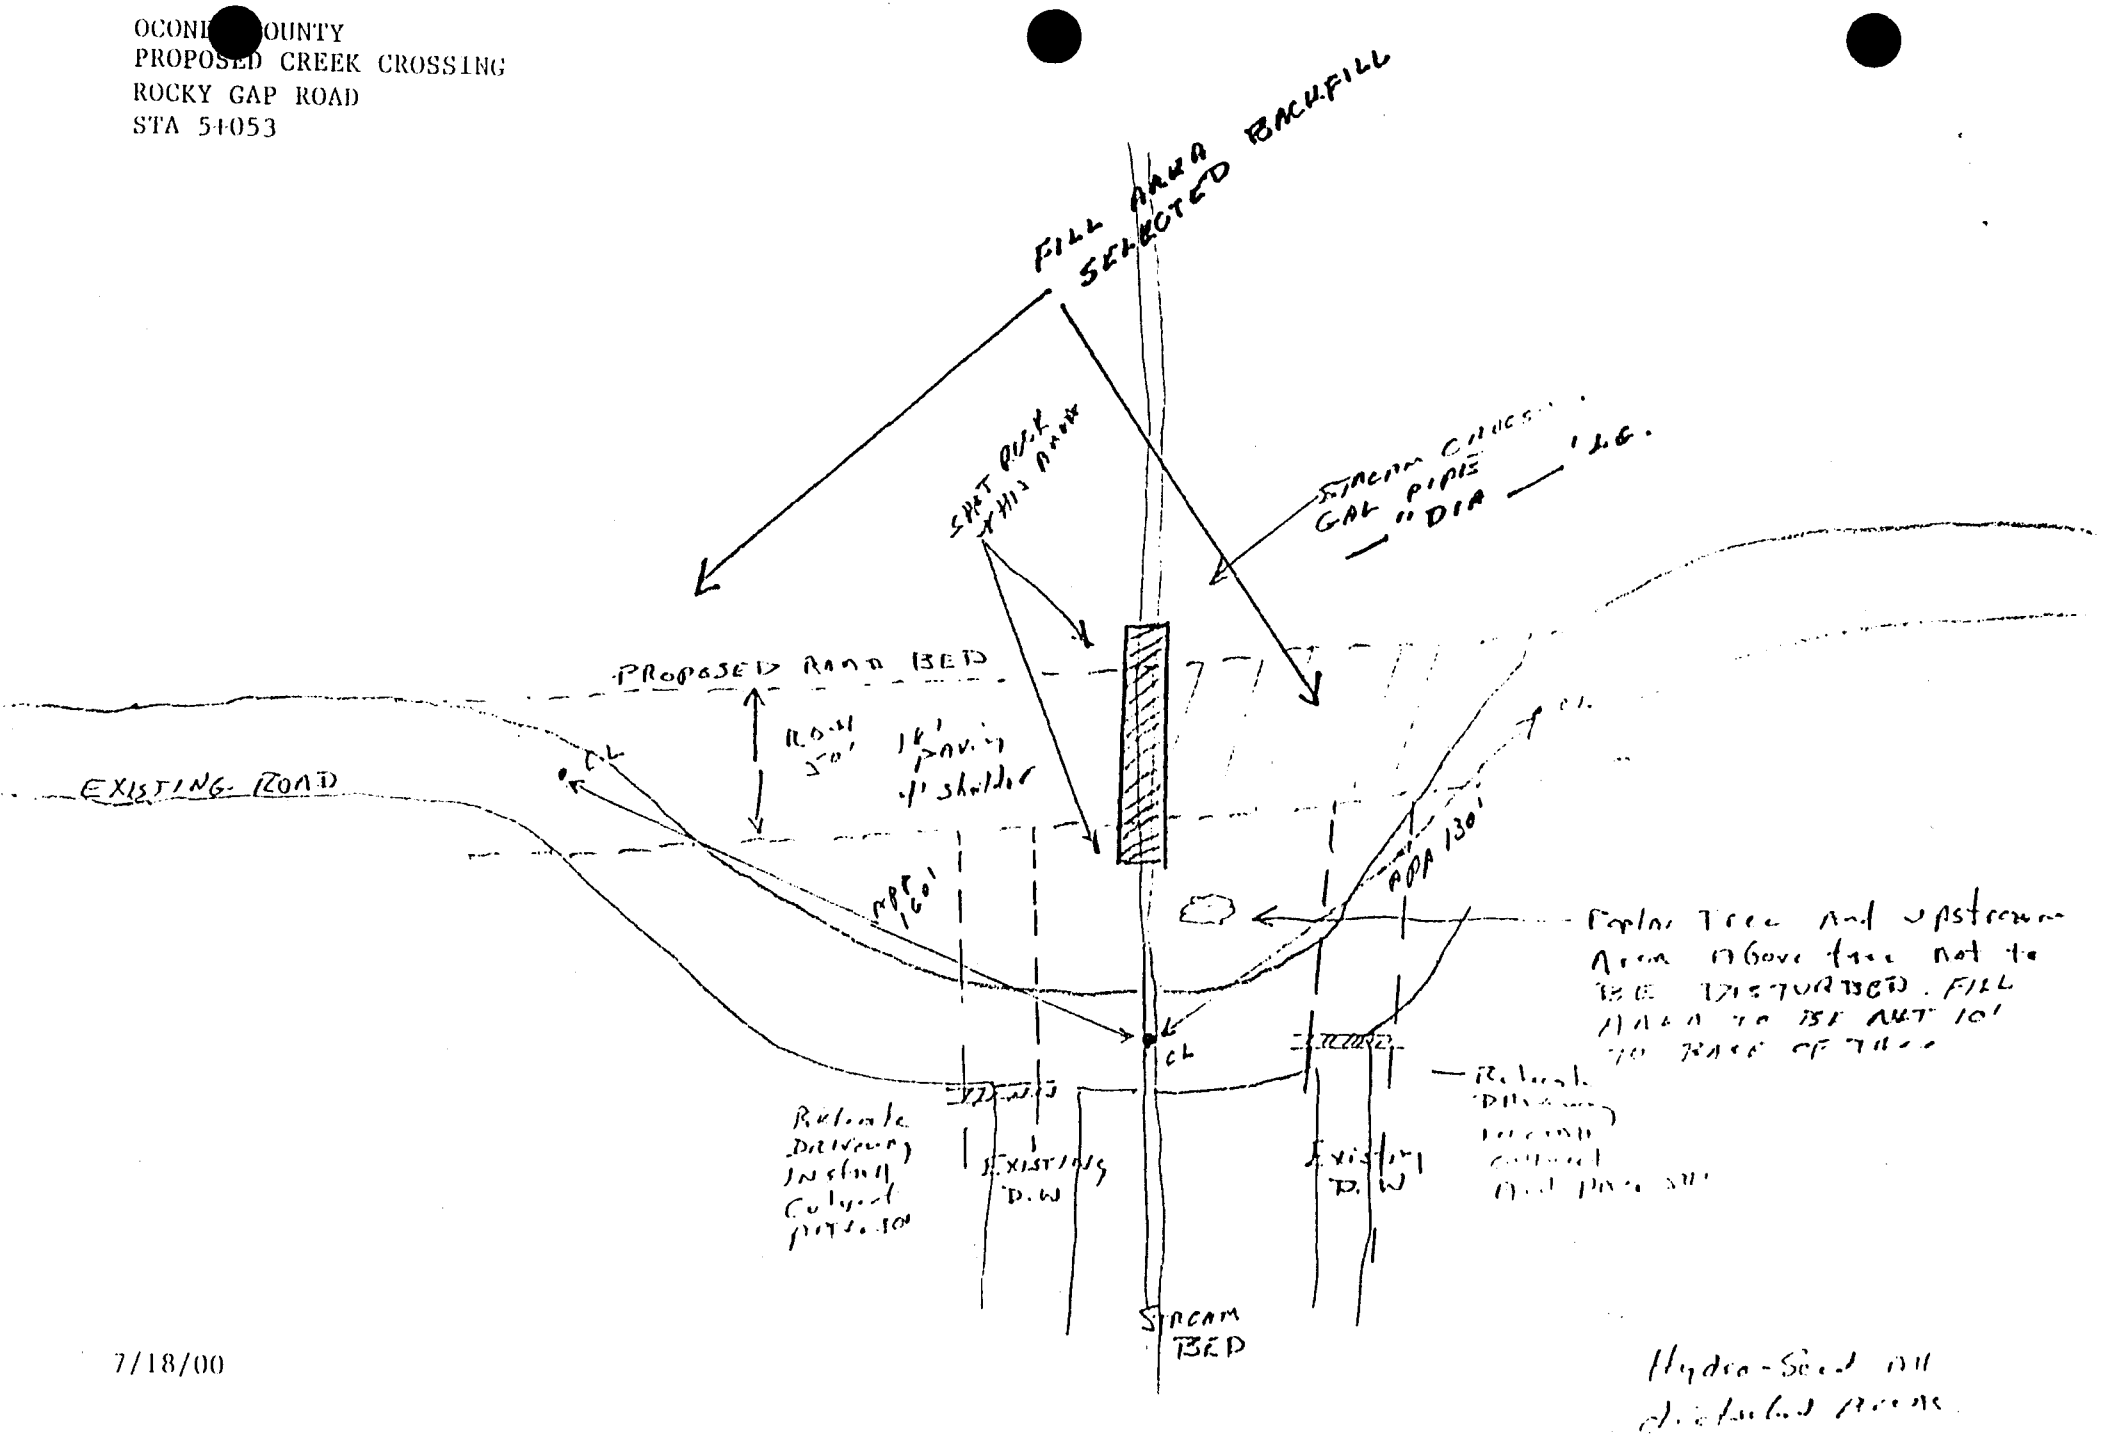 COUNTY
PROPOSED CREEK CROSSING
ROCKY GAP ROAD
STA 5+053
FILL AREA
SELECTED BACKFILL
THIS
STREAM
GAL PIPE
" DIA ' LG.
PROPOSED ROAD BED
50' 18'
paving
shoulder
C.L
CL
EXISTING ROAD
160'
APP 130'
CL
Poplar Tree And upstream
Area Above tree not to
BE DISTURBED. FILL
AREA TO BE NOT 10'
TO BASE OF TREE
Relocate
Driveway
Install
Culvert
EXISTING
D.W
Existing
D.W
Relocate
Driveway
STREAM
BED
7/18/00
Hydro-Seed All
disturbed Areas